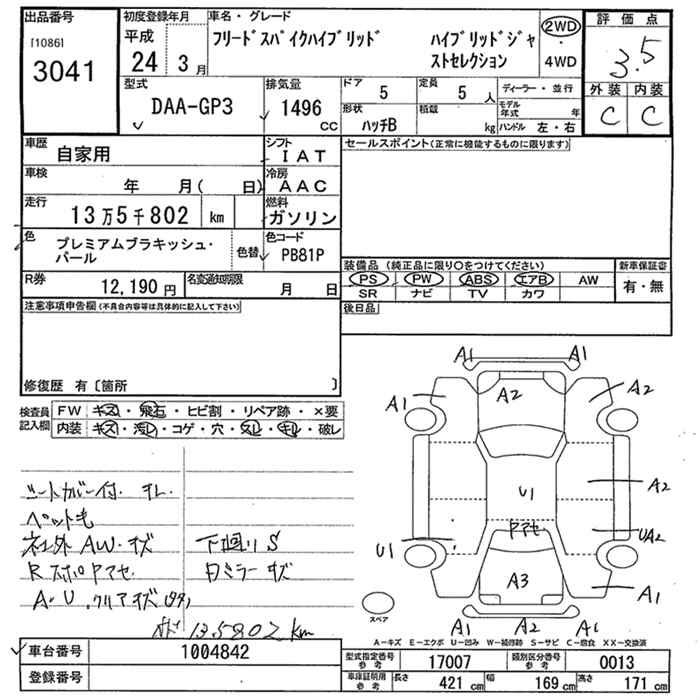 出品番号
[1086]
3041
初度登録年月
平成
24 3 月
車名・グレード
フリードスパイクハイブリッド ハイブリッドジャ
ストセレクション
2WD
・
4WD
評価点
3.5
外装 内装
C C
型式
DAA-GP3
排気量
1496
CC
ドア
5
定員
5 人
形状
ハッチB
積載
kg
ディーラー・並行
モデル
年式 年
ハンドル 左・右
車歴
自家用
シフト
IAT
車検
年 月( 日)
冷房
AAC
走行
13万5千802 km
燃料
ガソリン
色
プレミアムブラキッシュ・
パール
色替
色コード
PB81P
R券
12,190 円
名変通知期限
月 日
セールスポイント(正常に機能するものに限ります)
装備品 (純正品に限り○をつけてください)
PS PW ABS エアB AW
SR ナビ TV カワ
新車保証書
有・無
後日品
注意事項申告欄(不具合内容等は具体的に記入して下さい)
修復歴 有〔箇所 〕
検査員
記入欄
FW キズ・飛石・ヒビ割・リペア跡・×要
内装 キズ・汚レ・コゲ・穴・スレ・キレ・破レ
シートカバー付. チレ.
ペット毛
社外 AW・キズ
RスポPアセ
A・U.クリアキズ
下回りS
ミラーキズ
135802 km
A1
A1
A1
A2
A2
U1
A2
Pアセ
UA2
U1
A3
A1
A1
A2
A1
スペア
A−キズ E−エクボ U−凹み W−補修跡 S−サビ C−腐食 XX−交換済
車台番号
1004842
登録番号
型式指定番号
参考
17007
類別区分番号
参考
0013
車庫証明用
参考
長さ
421 cm
幅
169 cm
高さ
171 cm